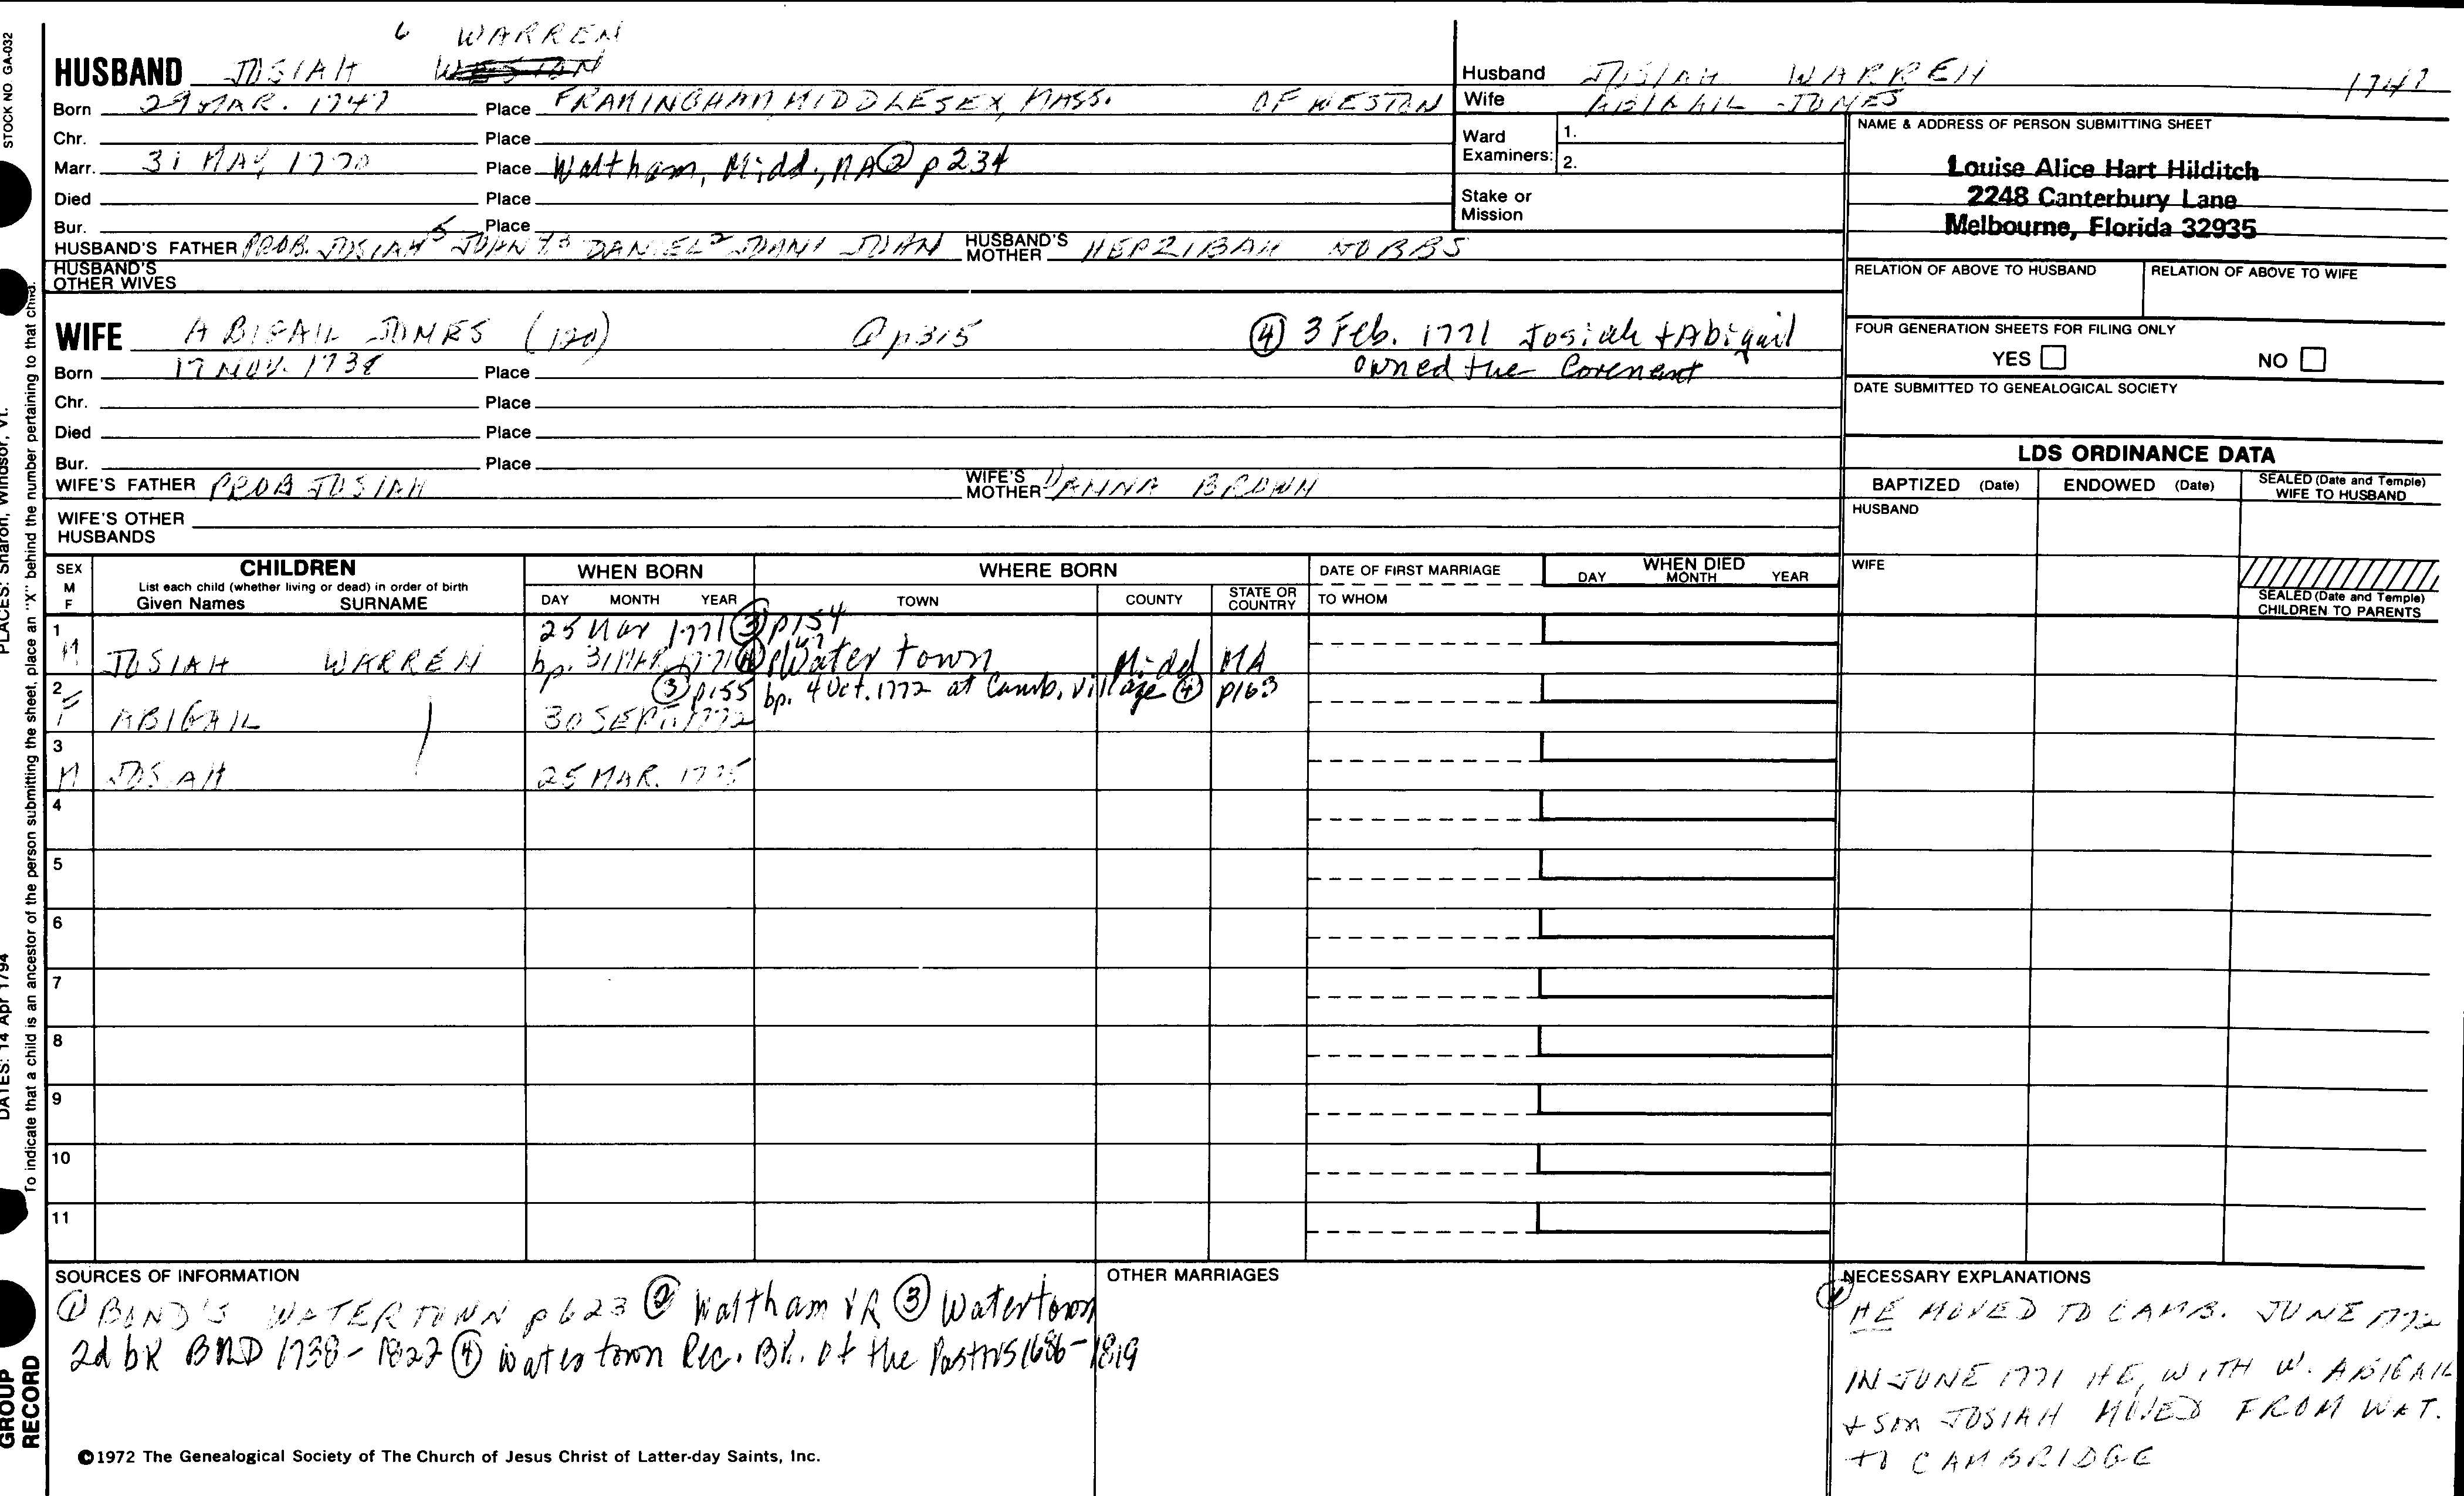 STOCK NO. GA-032
6 WARREN
HUSBAND JOSIAH WESTON
Born 29 MAR. 1747 Place FRAMINGHAM, MIDDLESEX, MASS. OF WESTON
Chr. Place
Marr. 31 MAY 1770 Place Waltham, Midd., MA ② p 234
Died Place
Bur. Place
HUSBAND'S FATHER PROB. JOSIAH 5 JOHN 4 3 DANIEL 2 JOHN 1 JOHN HUSBAND'S MOTHER HEPZIBAH HOBBS
HUSBAND'S OTHER WIVES
Husband JOSIAH WARREN 1747
Wife ABIGAIL JONES
Ward Examiners: 1.
2.
Stake or Mission
NAME & ADDRESS OF PERSON SUBMITTING SHEET
Louise Alice Hart Hilditch
2248 Canterbury Lane
Melbourne, Florida 32935
RELATION OF ABOVE TO HUSBAND RELATION OF ABOVE TO WIFE
FOUR GENERATION SHEETS FOR FILING ONLY
YES NO
DATE SUBMITTED TO GENEALOGICAL SOCIETY
WIFE ABIGAIL JONES (120) p 315 ④ 3 Feb. 1771 Josiah + Abigail
owned the Covenant
Born 17 NOV. 1738 Place
Chr. Place
Died Place
Bur. Place
WIFE'S FATHER PROB JOSIAH WIFE'S MOTHER BROWN
WIFE'S OTHER HUSBANDS
LDS ORDINANCE DATA
BAPTIZED (Date) ENDOWED (Date) SEALED (Date and Temple) WIFE TO HUSBAND
HUSBAND
WIFE
SEALED (Date and Temple) CHILDREN TO PARENTS
SEX M F
CHILDREN
List each child (whether living or dead) in order of birth
Given Names SURNAME
WHEN BORN
DAY MONTH YEAR
WHERE BORN
TOWN COUNTY STATE OR COUNTRY
DATE OF FIRST MARRIAGE
TO WHOM
WHEN DIED
DAY MONTH YEAR
1 25 Mar 1771 ③ p154
M JOSIAH WARREN bp. 31 MAR 1771 ④ Watertown Midd MA
2 ③ p155 bp. 4 Oct. 1772 at Camb. village ④ p163
F ABIGAIL 30 SEPT. 1772
3
M JOSIAH 25 MAR. 1775
4
5
6
7
8
9
10
11
SOURCES OF INFORMATION
① BOND'S WATERTOWN p 623 ② Waltham VR ③ Watertown
2d bk BMD 1738-1822 ④ Watertown Rec. Bk. of the Pastors 1686-1819
OTHER MARRIAGES
NECESSARY EXPLANATIONS
① HE MOVED TO CAMB. JUNE 1772
IN JUNE 1771 HE, WITH W. ABIGAIL
+ son JOSIAH MOVED FROM WAT.
to CAMBRIDGE
©1972 The Genealogical Society of The Church of Jesus Christ of Latter-day Saints, Inc.
PLACES: Sharon, Windsor, Vt.
DATES: 14 Apr 1794
To indicate that a child is an ancestor of the person submitting the sheet, place an "X" behind the number pertaining to that child.
GROUP RECORD